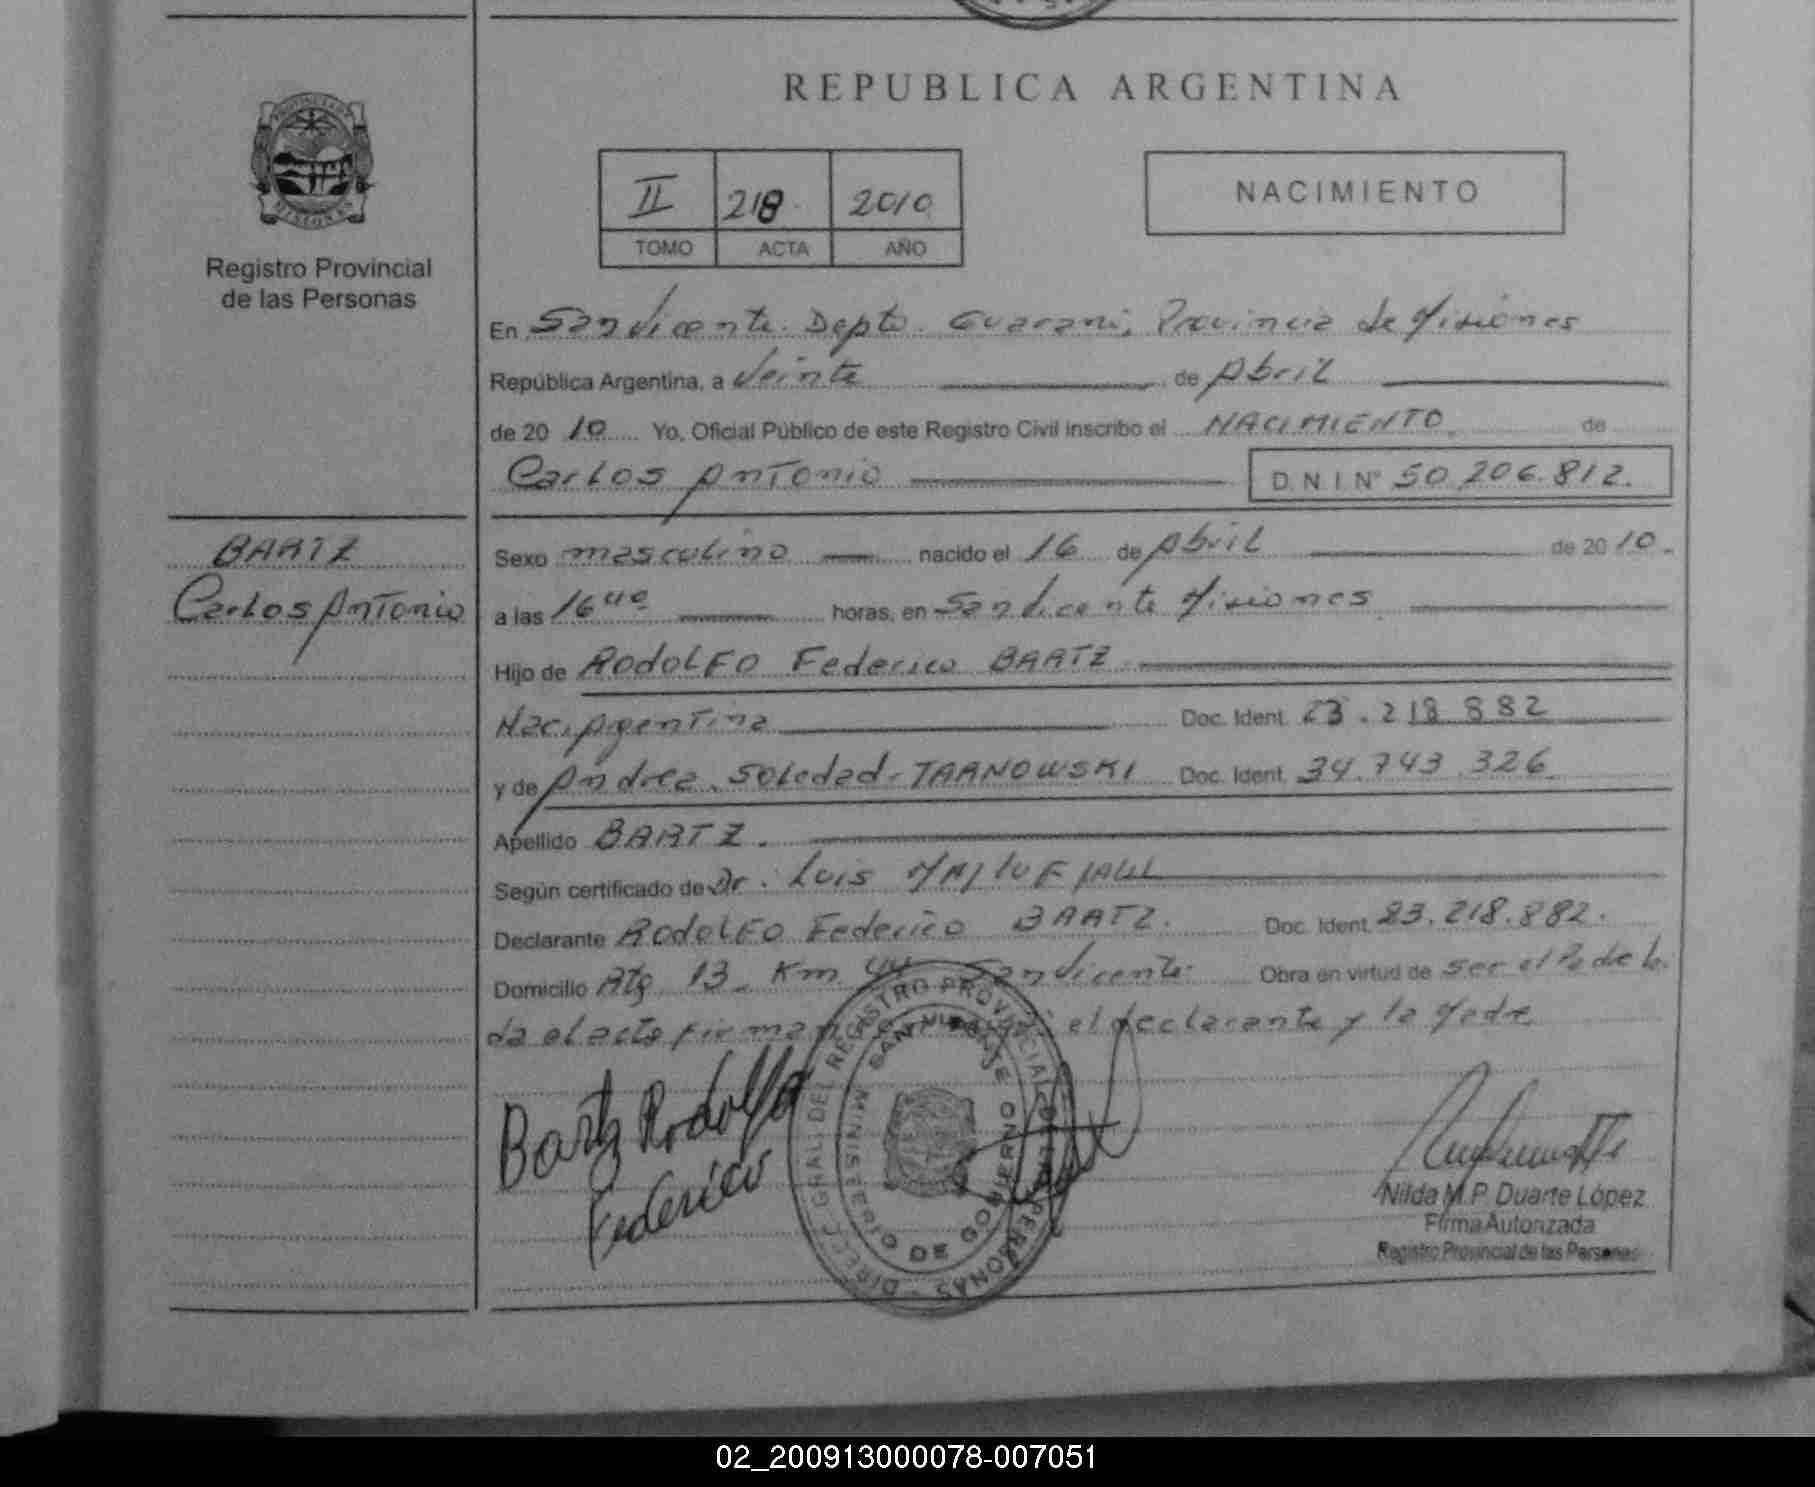 REPUBLICA ARGENTINA
PROVINCIA DE
MISIONES
Registro Provincial
de las Personas
II 218 2010
TOMO ACTA AÑO
NACIMIENTO
En San Vicente. Depto. Guarani, Provincia de Misiones
República Argentina, a Veinte de Abril
de 20 10 Yo, Oficial Público de este Registro Civil inscribo el NACIMIENTO. de
Carlos Antonio D.N.I.Nº 50.206.812.
BARTZ
Carlos Antonio
Sexo masculino nacido el 16 de Abril de 20 10.
a las 16 horas, en San Vicente Misiones
Hijo de RodoLFO Federico BARTZ
Nac. Argentina Doc. Ident. 23.218 882
y de Andrea Soledad TARNOWSKI Doc. Ident. 34.743.326
Apellido BARTZ.
Según certificado de Dr. Luis
Declarante RodoLFO Federico BARTZ. Doc. Ident. 23.218.882.
Domicilio Rta 13 Km. 44 San Vicente. Obra en virtud de ser el Padre
el acto firman el declarante y la Madre
Bartz Rodolfo
Federico
DIREC. GRAL. DEL REGISTRO PROVINCIAL DE LAS PERSONAS
SAN VICENTE
MINISTERIO DE GOBIERNO
Nilda M.P. Duarte López
Firma Autorizada
Registro Provincial de las Personas
02_200913000078-007051